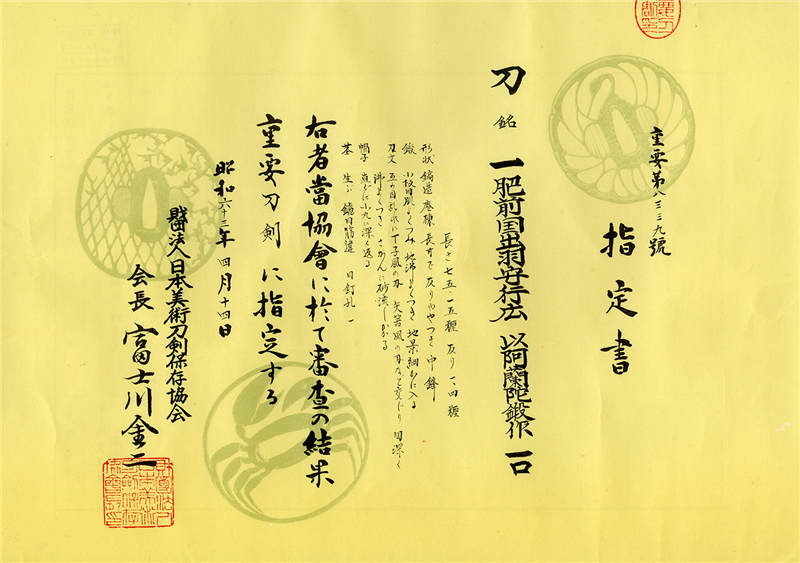 重要第八三三九號
指定書
刀 銘 一肥前国出羽守行広 以阿蘭陀鍛作 一口
長さ七五・一五糎 反り一・四糎
形状 鎬造 庵棟 長寸で 反りややつき 中鋒
鍛 小板目肌よくつみ 地沸よくつき 地景細かに入る
刃文 五の目乱れに丁子風の刃 矢筈風の刃など交じり 匂深く
沸よくつき さかんに砂流しかかる
帽子 直ぐに小丸に深く返る
茎 生ぶ 鑢目筋違 目釘孔一
右者當協會に於て審査の結果
重要刀剣に指定する
昭和六十三年四月十四日
財團法人日本美術刀剣保存協会
会長 富士川金二